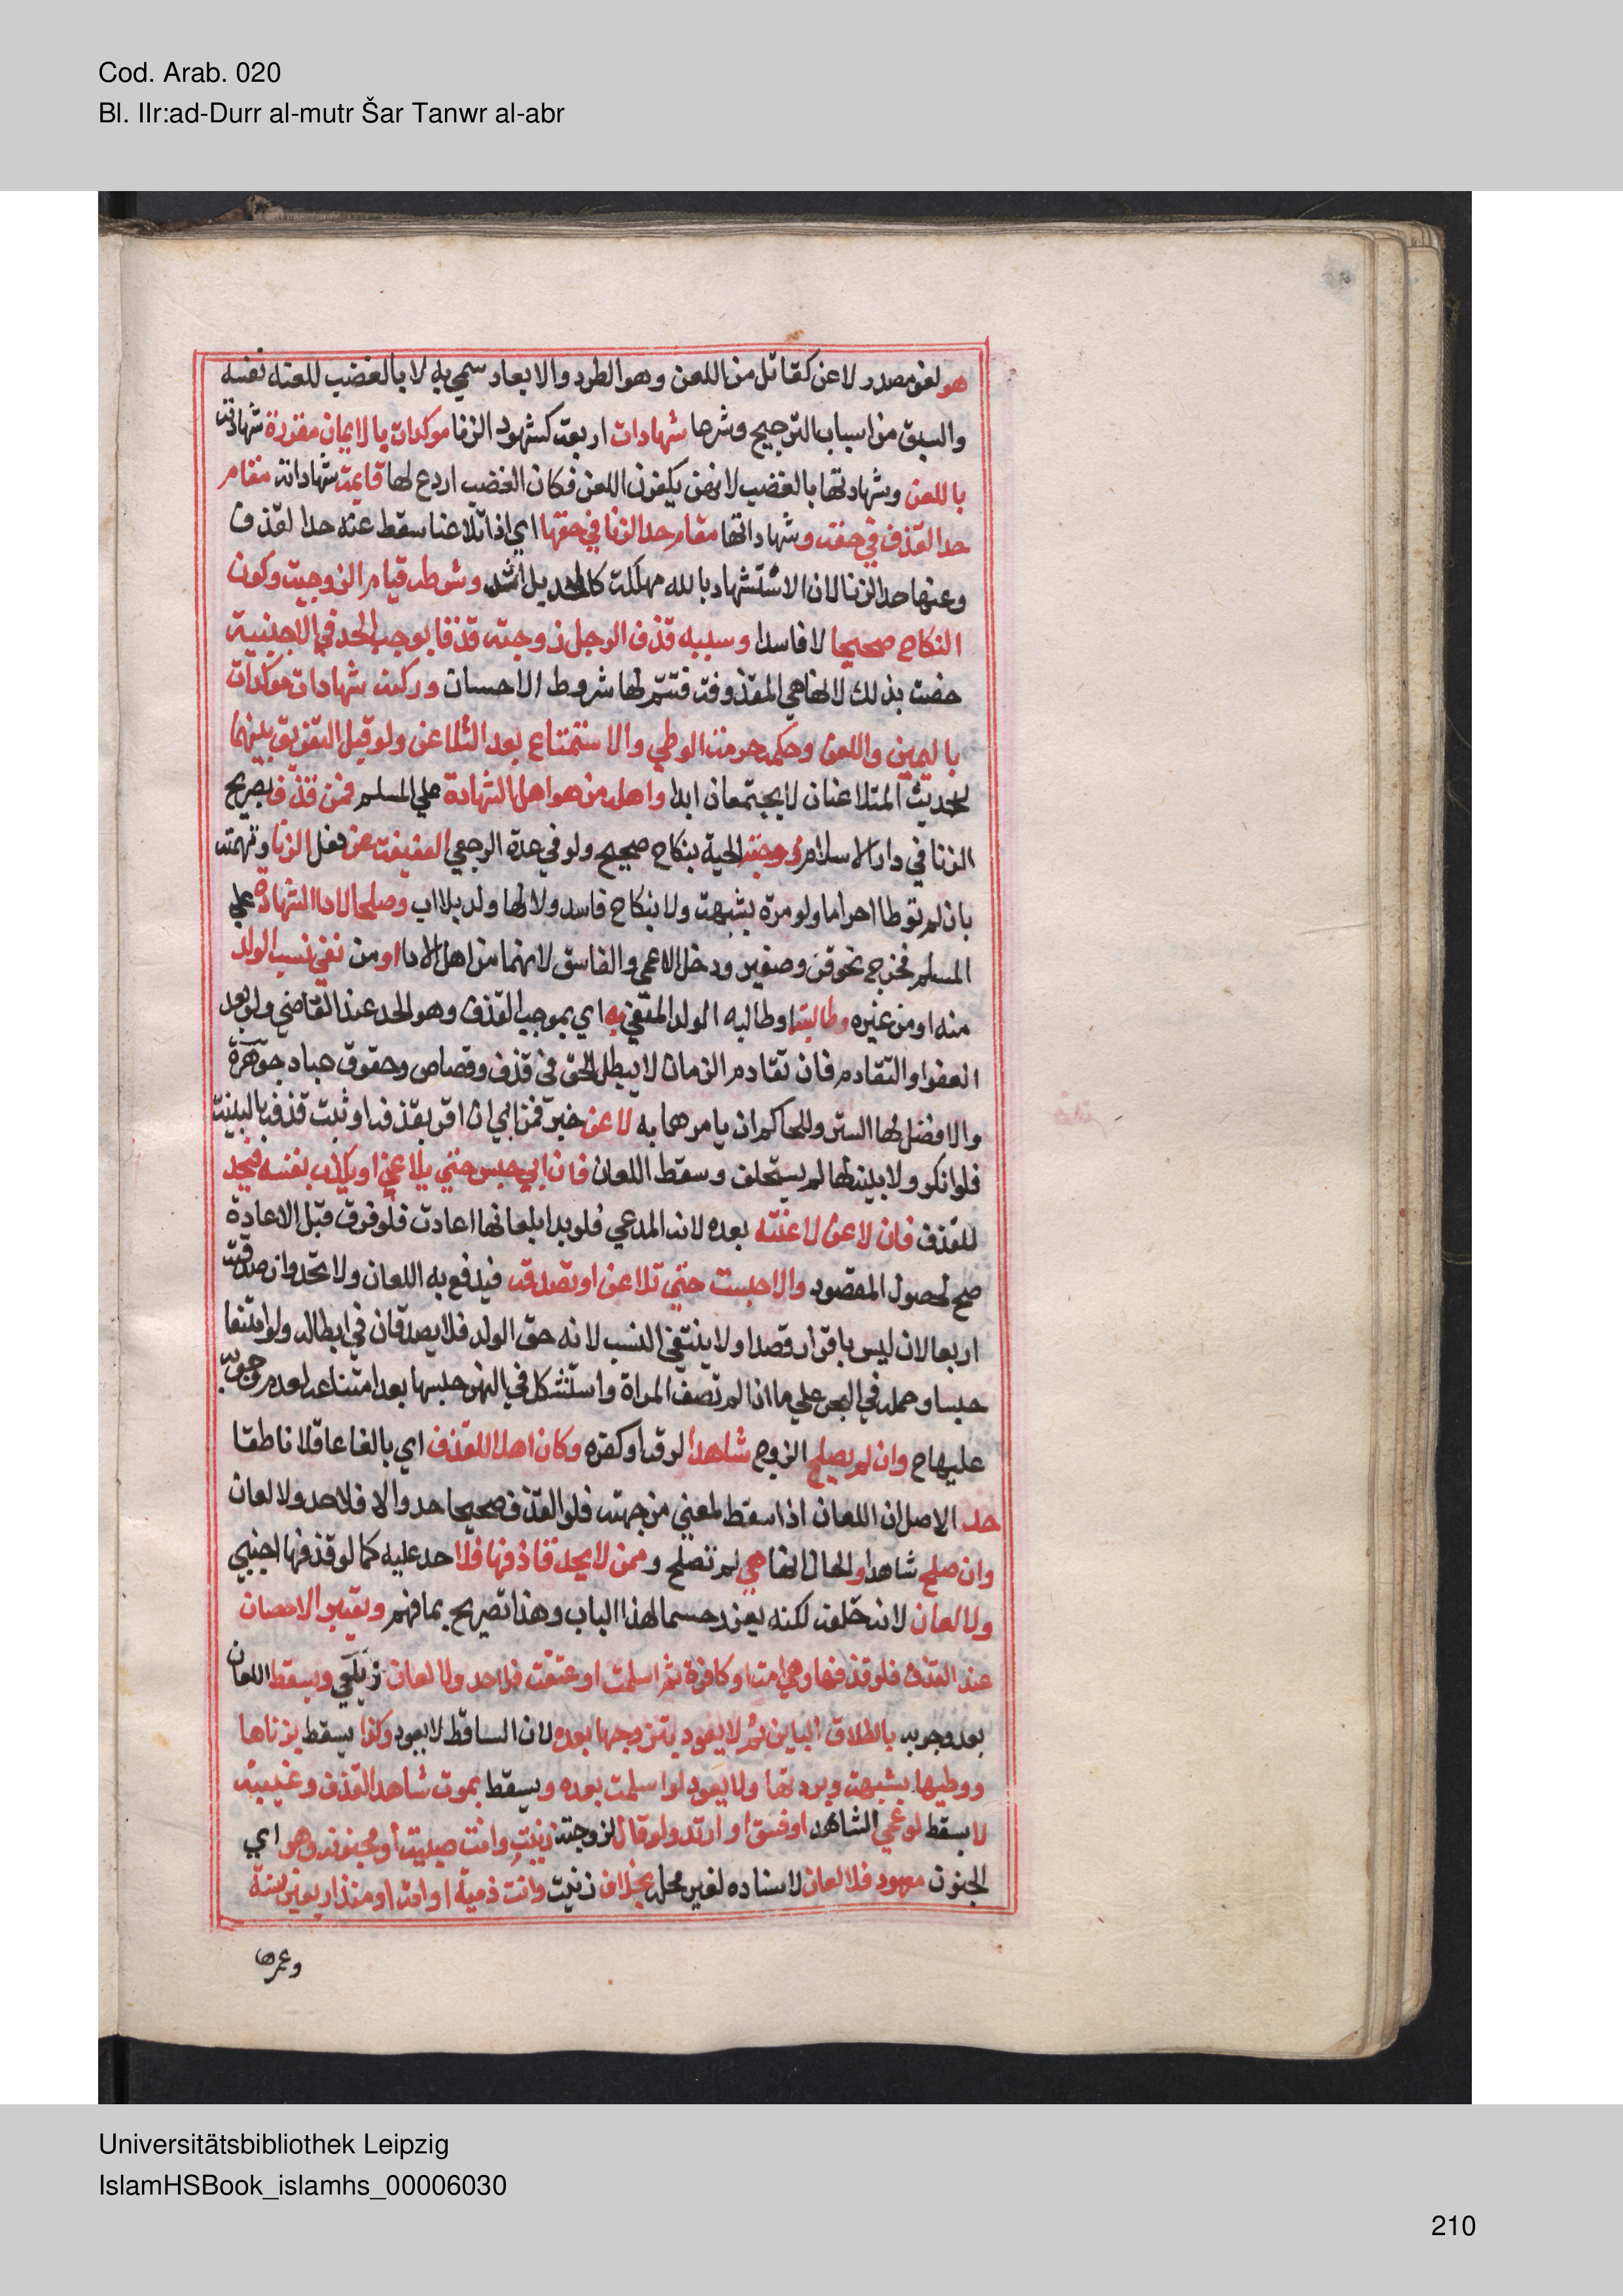 Cod. Arab. 020
Bl. IIr:ad-Durr al-mutr Šar Tanwr al-abr
هو لغة مصدر لاعن كقاتل من اللعن وهو الطرد والابعاد سمي به لا بالغضب للعنه نفسه
والسبق من اسباب الترجيح وشرعا شهادات اربعة كشهود الزنا موكدات بالايمان مقرونة شهادته
باللعن وشهادتها بالغضب لانهن يكثرن اللعن فكان الغضب اردع لها قايمة شهاداته مقام
حد القذف في حقه وشهاداتها مقام حد الزنا في حقها اي اذا تلاعنا سقط عنه حد القذف
وعنها حد الزنا لان الاستشهاد بالله مهلكة كالحد بل اشد وشرطه قيام الزوجية وكون
النكاح صحيحا لا فاسدا وسببه قذف الرجل زوجته قذفا يوجب الحد في الاجنبية
خصت بذلك لانها هي المقذوفة فتتم لها شروط الاحسان وركنه شهادات موكدات
باليمين واللعن وحكمه حرمة الوطي والاستمتاع بعد التلاعن ولو قبل التفريق بينهما
لحديث المتلاعنان لا يجتمعان ابدا واهله من هو اهل الشهادة علي المسلم فمن قذف بصريح
الزنا في دار الاسلام زوجته الحية بنكاح صحيح ولو في عدة الرجعي العفيفة عن فعل الزنا وتهمته
بان لم توطا حراما ولو مرة بشبهة ولا بنكاح فاسد ولا لها ولد بلا اب وصلحا لادا الشهادة علي
المسلم فخرج نحو قن وصغير ودخل الاعمي والفاسق لانهما من اهل الادا او من نفي نسب الولد
منه او من غيره وطالبته او طالبه الولد المنفي به اي بموجب القذف وهو الحد عند القاضي ولو بعد
العفو او التقادم فان تقادم الزمان لا يبطل الحق في قذف وقصاص وحقوق عباد جوهرة
والافضل لها الستر وللحاكم ان يامرهما به لاعن خبر فمن اي ان اقر بقذفه او ثبت قذفه بالبينة
فلو انكر ولا بينة لها لم يستحلف وسقط اللعان فان ابي حبس حتي يلاعن او يكذب نفسه فيحد
للقذف فان لاعن لاعنته بعده لانه المدعي فلو بدا بلعانها اعادت فلو فرق قبل الاعادة
صح لحصول المقصود والا حبست حتي تلاعن او تصدقه فيندفع به اللعان ولا تحد وان صدقته
اربعا لانه ليس باقرار قصدا ولا ينتفي النسب لانه حق الولد فلا يصدقان في ابطاله ولو امتنعا
حبسا وحمله في البحر علي ما اذا لم تعف المراة واستشكل في النهر حبسها بعد امتناعه لعدم وجوبه
عليها ح وان لم يصلح الزوج شاهدا لرقه او كفره وكان اهلا للقذف اي بالغا عاقلا ناطقا
حد الاصل ان اللعان اذا سقط لمعني من جهته فلو القذف صحيحا حد والا فلا حد ولا لعان
وان صلح شاهدا والحال انها هي لم تصلح وممن لا يحد قاذفها فلا حد عليه كما لو قذفها اجنبي
ولا لعان لانه خلفه لكنه يعزر حسما لهذا الباب وهذا تصريح بما فهم ويعتبر الاحصان
عند القذف فلو قذفها وهي امة او كافرة ثم اسلمت او عتقت فلا حد ولا لعان زيلعي ويسقط اللعان
بعد وجوبه بالطلاق الباين ثم لا يعود بتزوجها بعده لان الساقط لا يعود وكذا يسقط بزناها
ووطيها بشبهة وبردتها ولا يعود لو اسلمت بعده ويسقط بموت شاهد القذف وغيبته
لا يسقط لو عمي الشاهد او فسق او ارتد ولو قال لزوجته زنيت وانت صبية او مجنونة وهو اي
الجنون معهود فلا لعان لاسناده لغير محله بخلاف زنيت وانت ذمية او امة او منذ اربعين سنة
وعمرها
Universitätsbibliothek Leipzig
IslamHSBook_islamhs_00006030
210